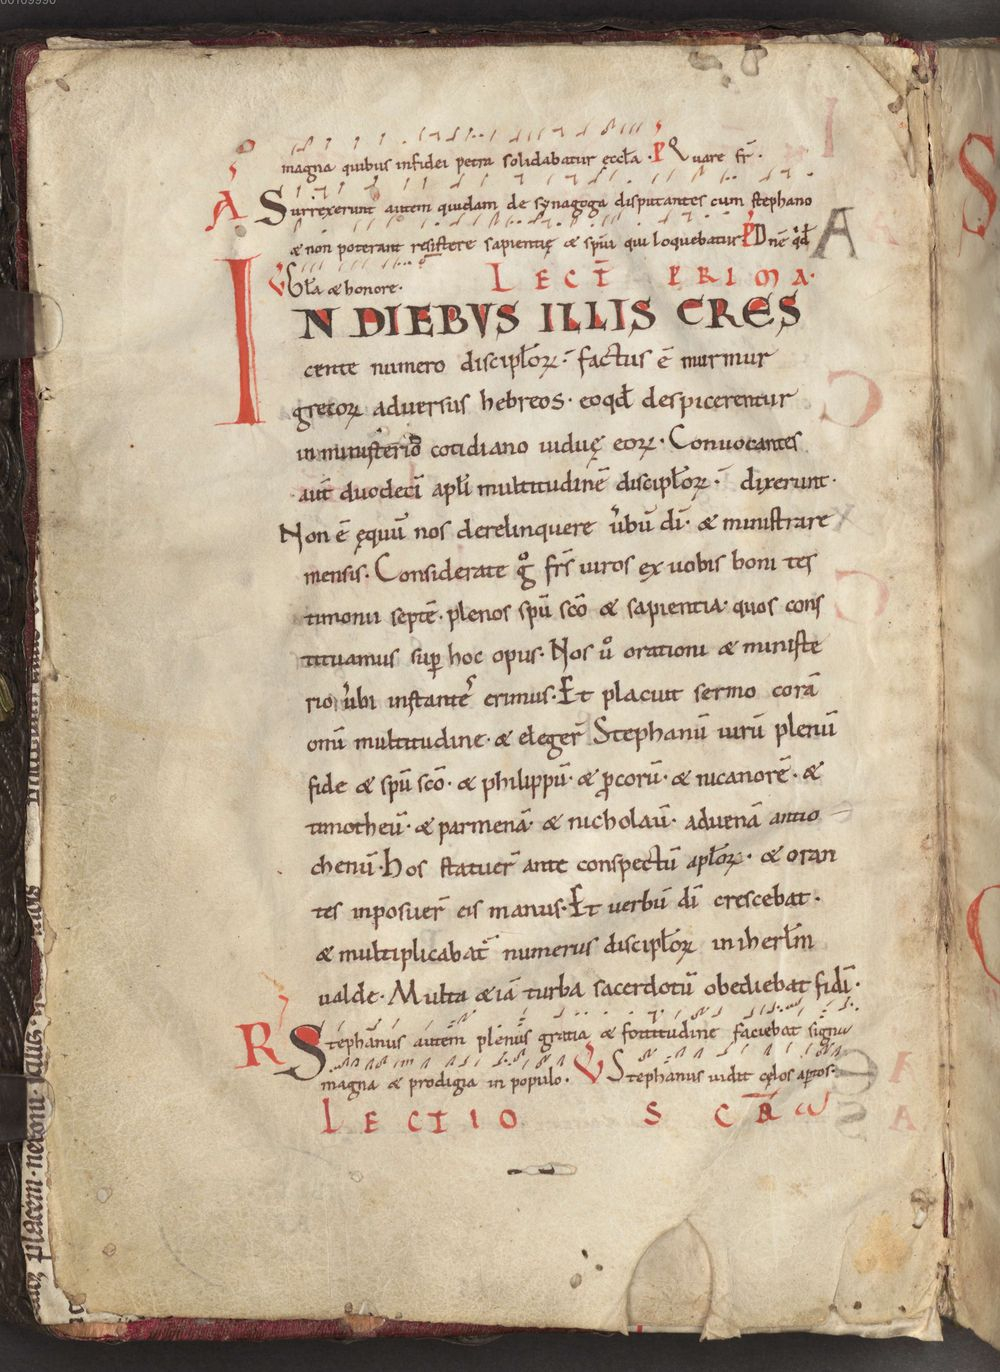 magna quibus infidei petra solidabatur ęccła · P Quare fr̄ ·
A Surrexerunt autem quidam de synagoga disputantes cum stephano
& non poterant resistere sapientię & sp̄ui qui loquebatur P Dn̄e q̄d
V Gła & honore · LECT̄ PRIMA ·
IN DIEBVS ILLIS CRES
cente numero discipłoꝝ · factus ē murmur
grecoꝝ aduersus hebreos · eoqđ despicerentur
in ministerio cotidiano uiduę eoꝝ · Conuocantes
aut̄ duodeci apłi multitudinē discipłoꝝ · dixerunt ·
Non ē ęquū nos derelinquere ūbū dī · & ministrare
mensis · Considerate gͦ frs̄ uiros ex uobis boni tes
timonii septē · plenos spū scō & sapientia · quos cons
tituamus suꝑ hoc opus · Nos uͦ orationi & ministe
rio ūbi instantes erimus · Et placuit sermo corā
omī multitudine · & eleger̄ Stephanū uirū plenū
fide & spū scō · & philippū · & p̄corū · & nicanorē · &
timotheū · & parmenā · & nicholaū · aduenā antio
chenū · Hos statuer̄ ante conspectū apłoꝝ · & oran
tes inposuer̄ eis manus · Et uerbū dī crescebat ·
& multiplicabat᷑ numerus discipłoꝝ in iherłm
ualde · Multa & iā turba sacerdotū obediebat fidī ·
R Stephanus autem plenus gratia & fortitudine faciebat signa
magna & prodigia in populo · V Stephanus uidit cęlos aꝑtos ·
LECTIO S